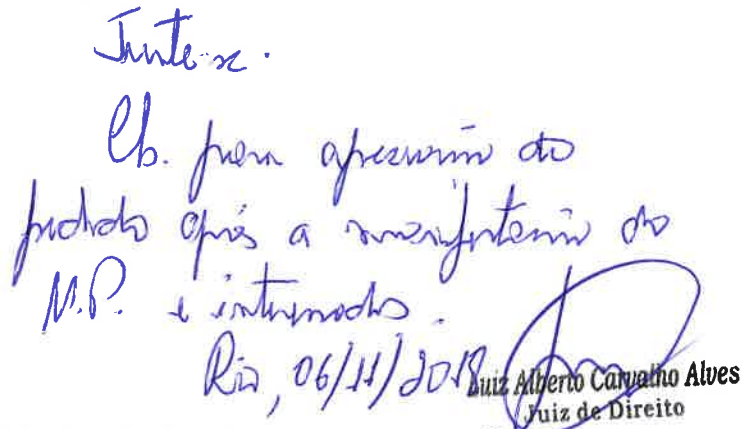 Junte-se.
Cls. para apreciação do
pedido após a manifestação do
M.P. e interessados.
Rio, 06/11/2018
Luiz Alberto Carvalho Alves
Juiz de Direito